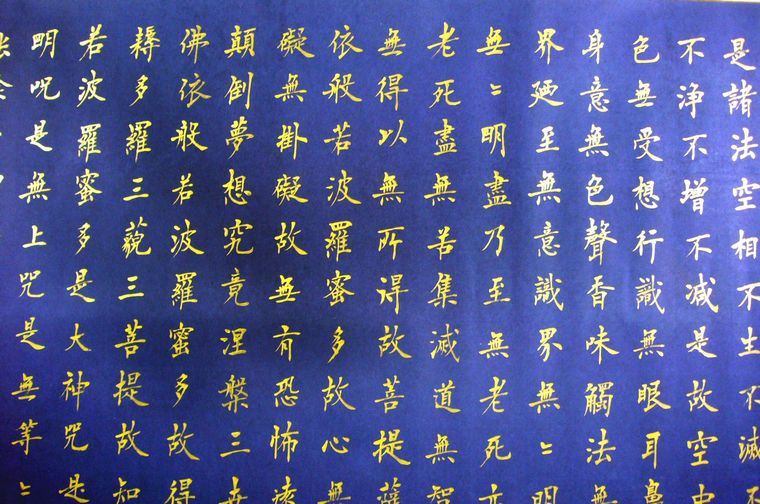 是諸法空相不生不滅不
不淨不增不減是故空中
色無受想行識無眼耳鼻
身意無色聲香味觸法無
界廼至無意識界無〻明
無〻明盡乃至無老死亦
老死盡無苦集滅道無智
無得以無所得故菩提薩
依般若波羅蜜多故心無
礙無掛礙故無有恐怖遠
顛倒夢想究竟涅槃三世
佛依般若波羅蜜多故得
耨多羅三藐三菩提故知
若波羅蜜多是大神咒是
明咒是無上咒是無等〻